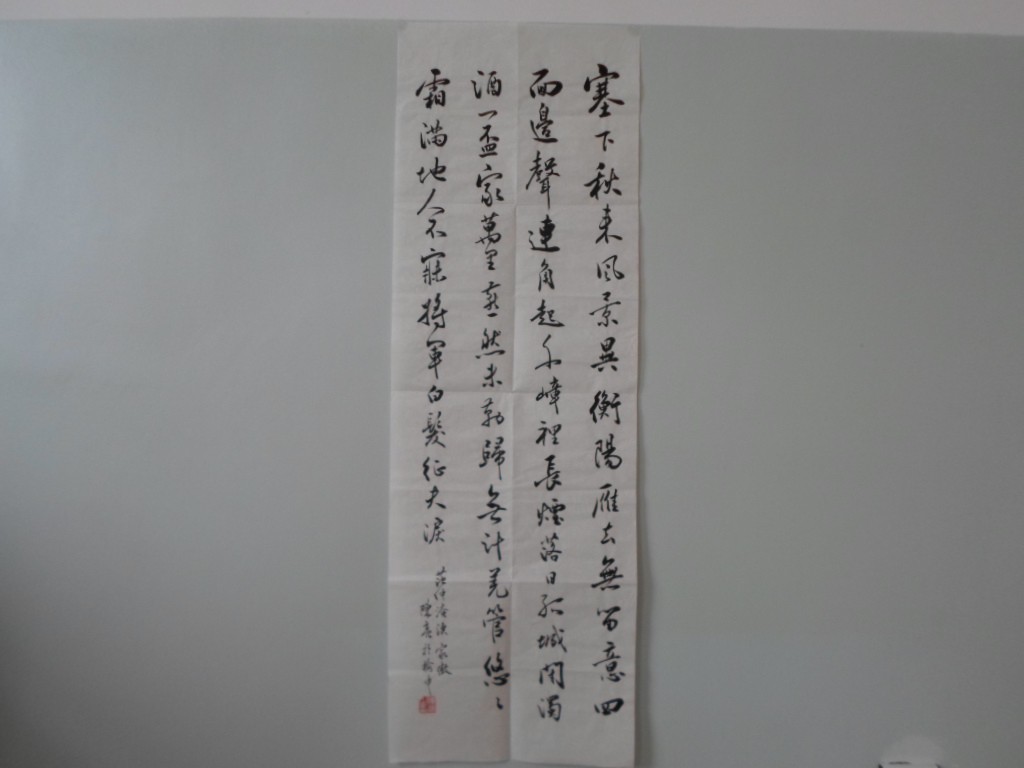 塞下秋来風景異衡陽雁去無留意四
面邊聲連角起千嶂裡長煙落日孤城閉濁
酒一盃家萬里燕然未勒歸無計羌管悠〻
霜滿地人不寐將軍白髮征夫淚
范仲淹漁家傲